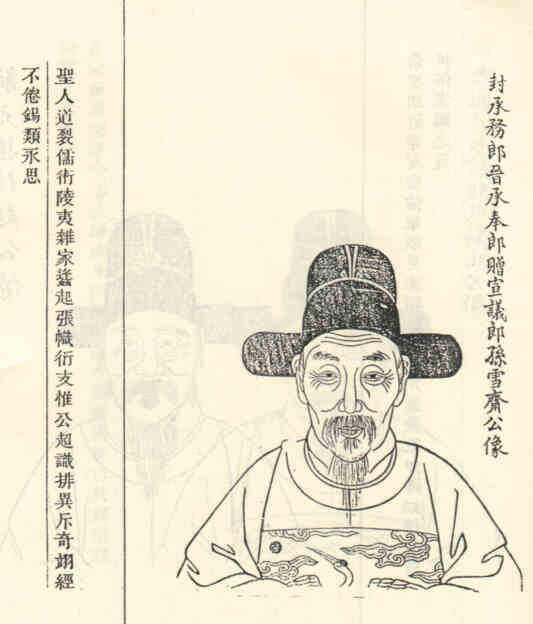 封承務郎晉承奉郎贈宣議郎孫雪齋公像
聖人道裂儒術陵夷雜家蠭起張幟衍支惟公超識排異斥奇翊經
不倦錫類永思